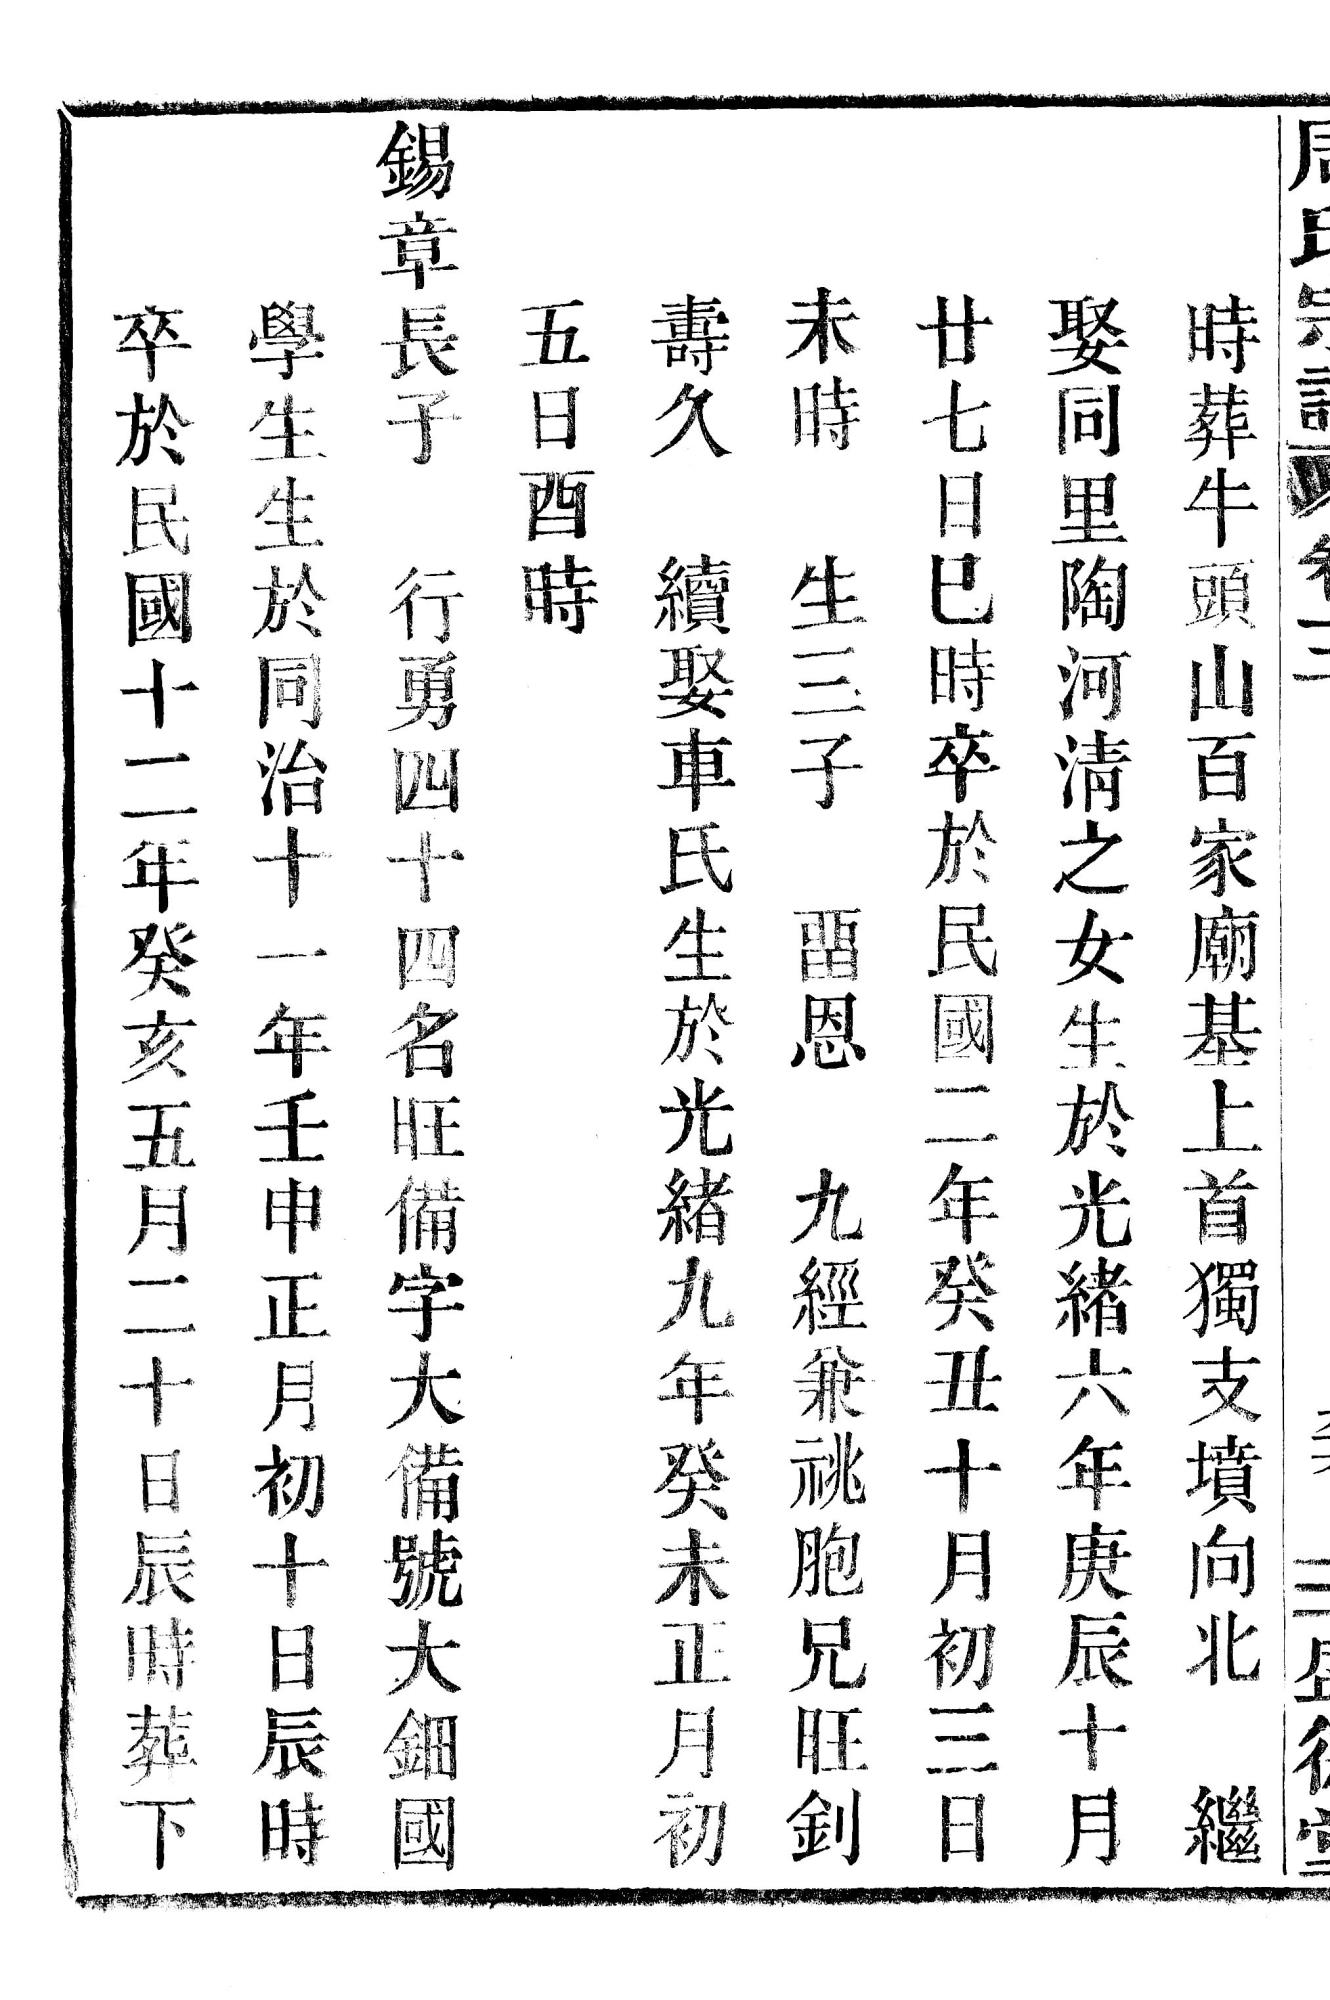 周氏宗譜 卷二
時葬牛頭山百家廟基上首獨支墳向北 繼
娶同里陶河淸之女生於光緖六年庚辰十月
廿七日巳時卒於民國二年癸丑十月初三日
未時 生三子 畱恩 九經兼祧胞兄旺釗
壽久 續娶車氏生於光緖九年癸未正月初
五日酉時
錫章長子 行勇四十四名旺備字大備號大鈿國
學生生於同治十一年壬申正月初十日辰時
卒於民國十二年癸亥五月二十日辰時葬下